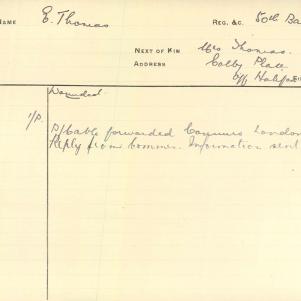 NAME E. Thomas REG. &C. 50th Ba
NEXT OF KIN Mrs Thomas.
ADDRESS Colby Place
off Halifax
Wounded.
1/P. D/Cable forwarded London
Reply from Information sent